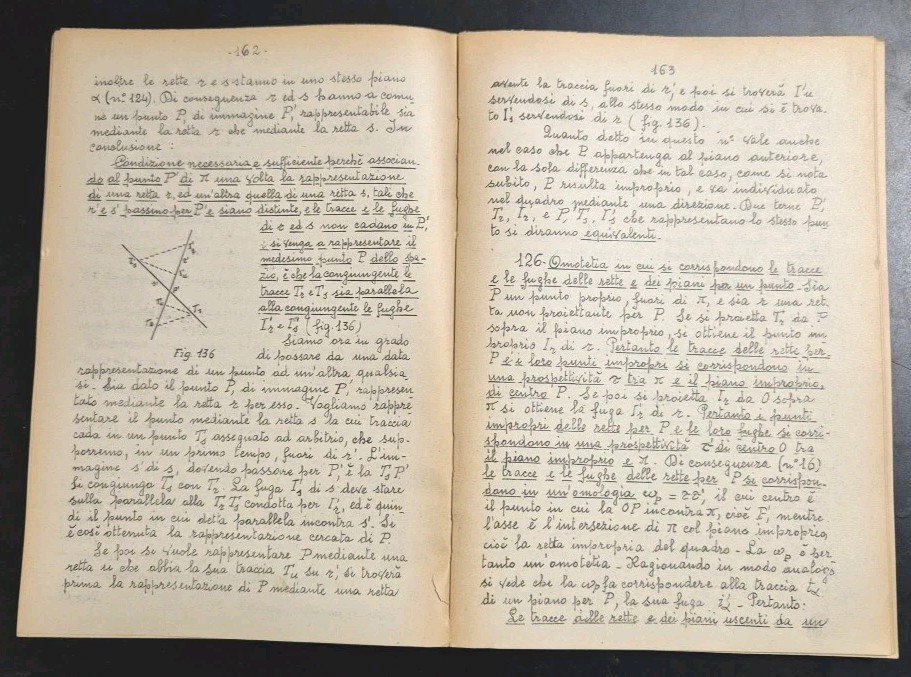 -162-
inoltre le rette r e s stanno in uno stesso piano
α (n° 124). Di conseguenza r ed s hanno a comu
ne un punto P, di immagine P', rappresentabile sia
mediante la retta r che mediante la retta s. In
conclusione:
Condizione necessaria e sufficiente perché associan-
do al punto P' di π una volta la rappresentazione
di una retta r, ed un'altra quella di una retta s, tali che
r' e s' passino per P' e siano distinte, e le tracce e le fughe
di r ed s non cadano in P',
si venga a rappresentare il
medesimo punto P dello spa-
zio, è che la congiungente le
tracce Tr e Ts sia parallela
alla congiungente le fughe
I'r e I's (fig. 136)
Siamo ora in grado
Fig. 136
di passare da una data
rappresentazione di un punto ad un'altra qualsia
si. Sia dato il punto P, di immagine P', rappresen
tato mediante la retta r per esso. Vogliamo rappre
sentare il punto mediante la retta s la cui traccia
cada in un punto Ts assegnato ad arbitrio, che sup-
porremo, in un primo tempo, fuori di r'. L'im-
magine s' di s, dovendo passare per P', è la TsP'
Si congiunga Ts con Tr. La fuga I's di s deve stare
sulla parallela alla TrTs condotta per I'r, ed è quin-
di il punto in cui detta parallela incontra s'. Si
è così ottenuta la rappresentazione cercata di P.
Se poi si vuole rappresentare P mediante una
retta u che abbia la sua traccia Tu su r', si troverà
prima la rappresentazione di P mediante una retta
163
avente la traccia fuori di r', e poi si troverà I'u
servendosi di s, allo stesso modo in cui si è trova.
to I's servendosi di r (fig. 136).
Quanto detto in questo n° vale anche
nel caso che P appartenga al piano anteriore,
con la sola differenza che in tal caso, come si nota
subito, P risulta improprio, e va individuato
nel quadro mediante una direzione. Due terne P',
Tr, I'r, e P', Ts, I's che rappresentano lo stesso pun
to si diranno equivalenti.
126. Omotetia in cui si corrispondono le tracce
e le fughe delle rette e dei piani per un punto. Sia
P un punto proprio, fuori di π, e sia r una ret.
ta non proiettante per P. Se si proietta Tr da P
sopra il piano improprio, si ottiene il punto im
proprio Ir di r. Pertanto le tracce delle rette per
P e i loro punti impropri si corrispondono in
una prospettività τ tra π e il piano improprio,
di centro P. Se poi si proietta Ir da O sopra
π si ottiene la fuga I'r di r. Pertanto i punti
impropri delle rette per P e le loro fughe si corri-
spondono in una prospettività τ' di centro O tra
il piano improprio e π. Di conseguenza (n° 16)
le tracce e le fughe delle rette per P si corrispon-
dono in un'omologia ωp = ττ', il cui centro è
il punto in cui la OP incontra π, cioè P', mentre
l'asse è l'intersezione di π col piano improprio
cioè la retta impropria del quadro - La ωp è per
tanto un omotetia - Ragionando in modo analogo
si vede che la ωp fa corrispondere alla traccia tα
di un piano per P, la sua fuga i'α - Pertanto:
Le tracce delle rette e dei piani uscenti da un